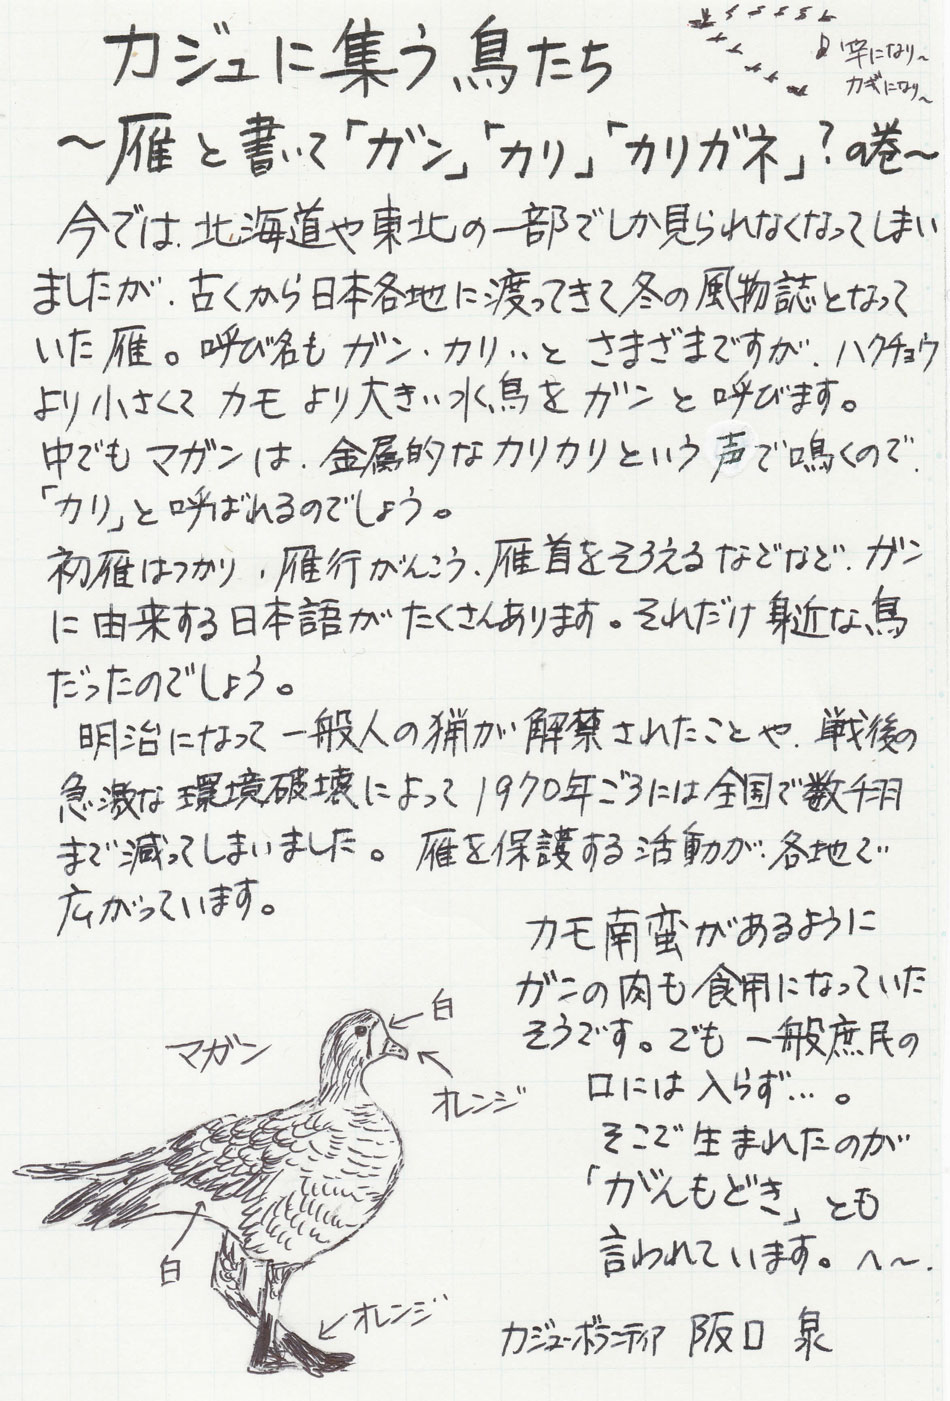 カジュに集う鳥たち
♪竿になり〜
カギになり〜
〜雁と書いて「ガン」「カリ」「カリガネ」?の巻〜
今では、北海道や東北の一部でしか見られなくなってしまい
ましたが、古くから日本各地に渡ってきて冬の風物誌となって
いた雁。呼び名もガン、カリ、、とさまざまですが、ハクチョウ
より小さくてカモより大きい水鳥をガンと呼びます。
中でもマガンは、金属的なカリカリという声で鳴くので、
「カリ」と呼ばれるのでしょう。
初雁はつかり、雁行がんこう、雁首をそろえるなどなど、ガン
に由来する日本語がたくさんあります。それだけ身近な鳥
だったのでしょう。
明治になって一般人の猟が解禁されたことや、戦後の
急激な環境破壊によって1970年ごろには全国で数千羽
まで減ってしまいました。雁を保護する活動が、各地で
広がっています。
カモ南蛮があるように
ガンの肉も食用になっていた
そうです。でも一般庶民の
口には入らず…。
そこで生まれたのが
「がんもどき」とも
言われています。へ〜。
マガン
白
オレンジ
白
オレンジ
カジューボランティア 阪口 泉